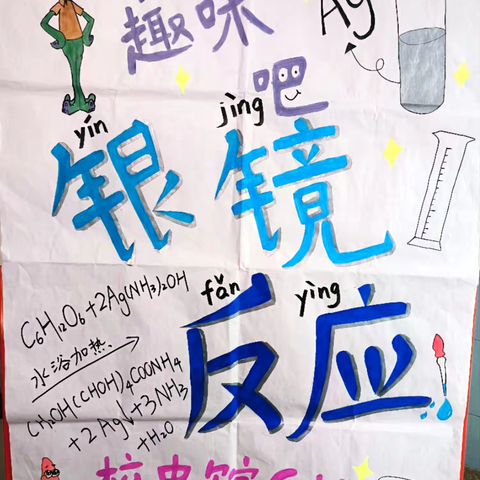 趣味 Ag
吧
yín jìng
银镜
fǎn yìng
反应
C₆H₁₂O₆+2Ag(NH₃)₂OH
水浴加热
CH₂OH(CHOH)₄COONH₄
+2Ag↓+3NH₃
+H₂O